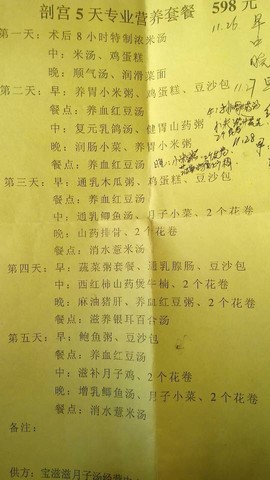 剖宫5天专业营养套餐 598元
第一天：术后8小时特制浓米汤
中：米汤、鸡蛋糕
晚：顺气汤、润滑菜面
第二天：早：养胃小米粥、鸡蛋糕、豆沙包
餐点：养血红豆汤
中：复元乳鸽汤、健胃山药粥
晚：润肠小菜、养胃小米粥
餐点：养血红豆汤
第三天：早：通乳木瓜粥、鸡蛋糕、豆沙包
餐点：养血红豆汤
中：通乳鲫鱼汤、月子小菜、2个花卷
晚：山药排骨、2个花卷
餐点：消水薏米汤
第四天：早：蔬菜粥套餐、通乳腺肠、豆沙包
中：西红柿山药煲牛楠、2个花卷
晚：麻油猪肝、养血红豆粥、2个花卷
餐点：滋养银耳百合汤
第五天：早：鲍鱼粥、豆沙包
餐点：养血红豆汤
中：滋补月子鸡、2个花卷
晚：增乳鲫鱼汤、月子小菜、2个花卷
餐点：消水薏米汤
备注：
供方：宝滋滋月子汤
11.26 早
中
晚
11.28
早